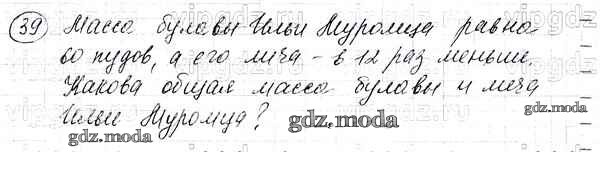 39 Масса булавы Ильи Муромца равно
60 пудов, а его меча - в 12 раз меньше.
Какова общая масса булавы и меча
Ильи Муромца?
gdz.moda
gdz.moda
gdz.moda